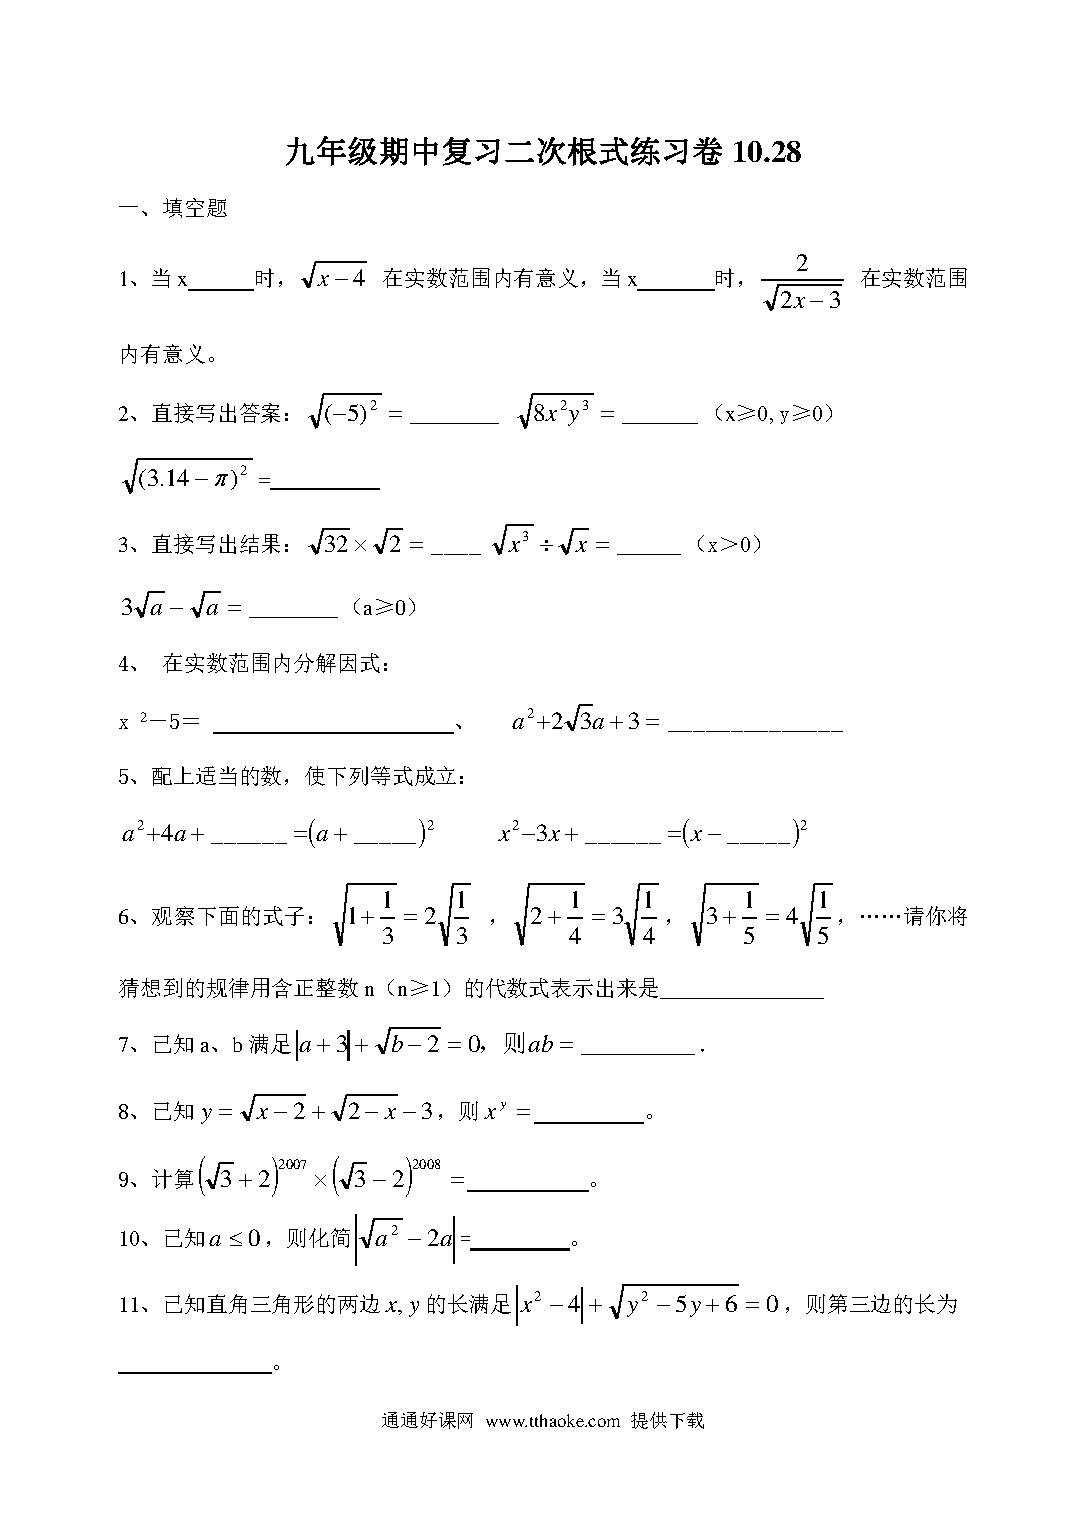 九年级期中复习二次根式练习卷 10.28
一、填空题
1、当 x______时，√(x−4) 在实数范围内有意义，当 x_______时，2/√(2x−3) 在实数范围
内有意义。
2、直接写出答案：√((−5)²) = _______ √(8x²y³) = ______（x≥0, y≥0）
√((3.14−π)²) =__________
3、直接写出结果：√32×√2 = ____ √(x³)÷√x = _____（x＞0）
3√a−√a = _______（a≥0）
4、 在实数范围内分解因式：
x ²－5＝ ______________________、 a²+2√3a+3 = ______________
5、配上适当的数，使下列等式成立：
a²+4a+ ______ =(a+ _____)² x²−3x+ ______ =(x− _____)²
6、观察下面的式子：√(1+1/3) = 2√(1/3) ，√(2+1/4) = 3√(1/4)，√(3+1/5) = 4√(1/5)，……请你将
猜想到的规律用含正整数 n（n≥1）的代数式表示出来是_______________
7、已知 a、b 满足|a+3|+√(b−2) = 0，则ab = _________ .
8、已知 y = √(x−2)+√(2−x)−3，则 x^y =__________。
9、计算(√3+2)^2007×(√3−2)^2008 =___________。
10、已知 a ≤ 0，则化简|√(a²)−2a|=_________。
11、已知直角三角形的两边 x, y 的长满足|x²−4|+√(y²−5y+6) = 0，则第三边的长为
______________。
通通好课网 www.tthaoke.com 提供下载